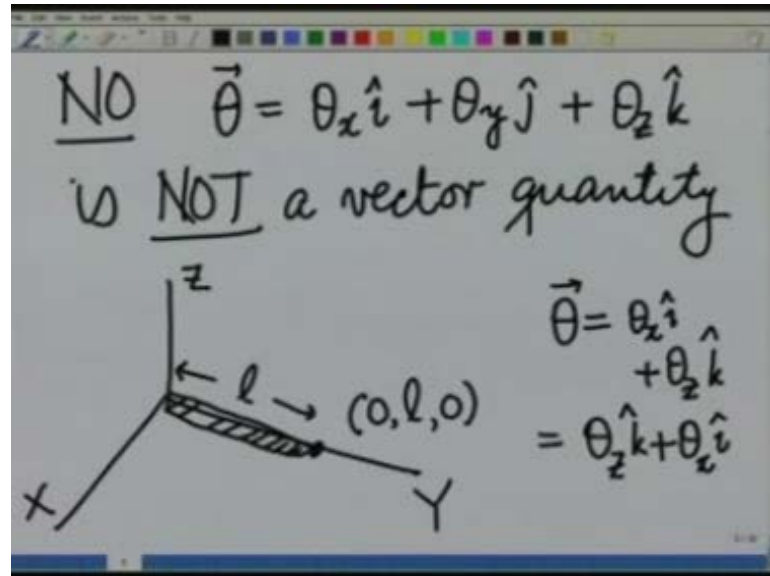 NO θ⃗ = θₓî + θᵧĵ + θ_z k̂
is NOT a vector quantity
Z
← l →
(0, l, 0)
X
Y
θ⃗ = θₓî
+ θ_z k̂
= θ_z k̂ + θₓî